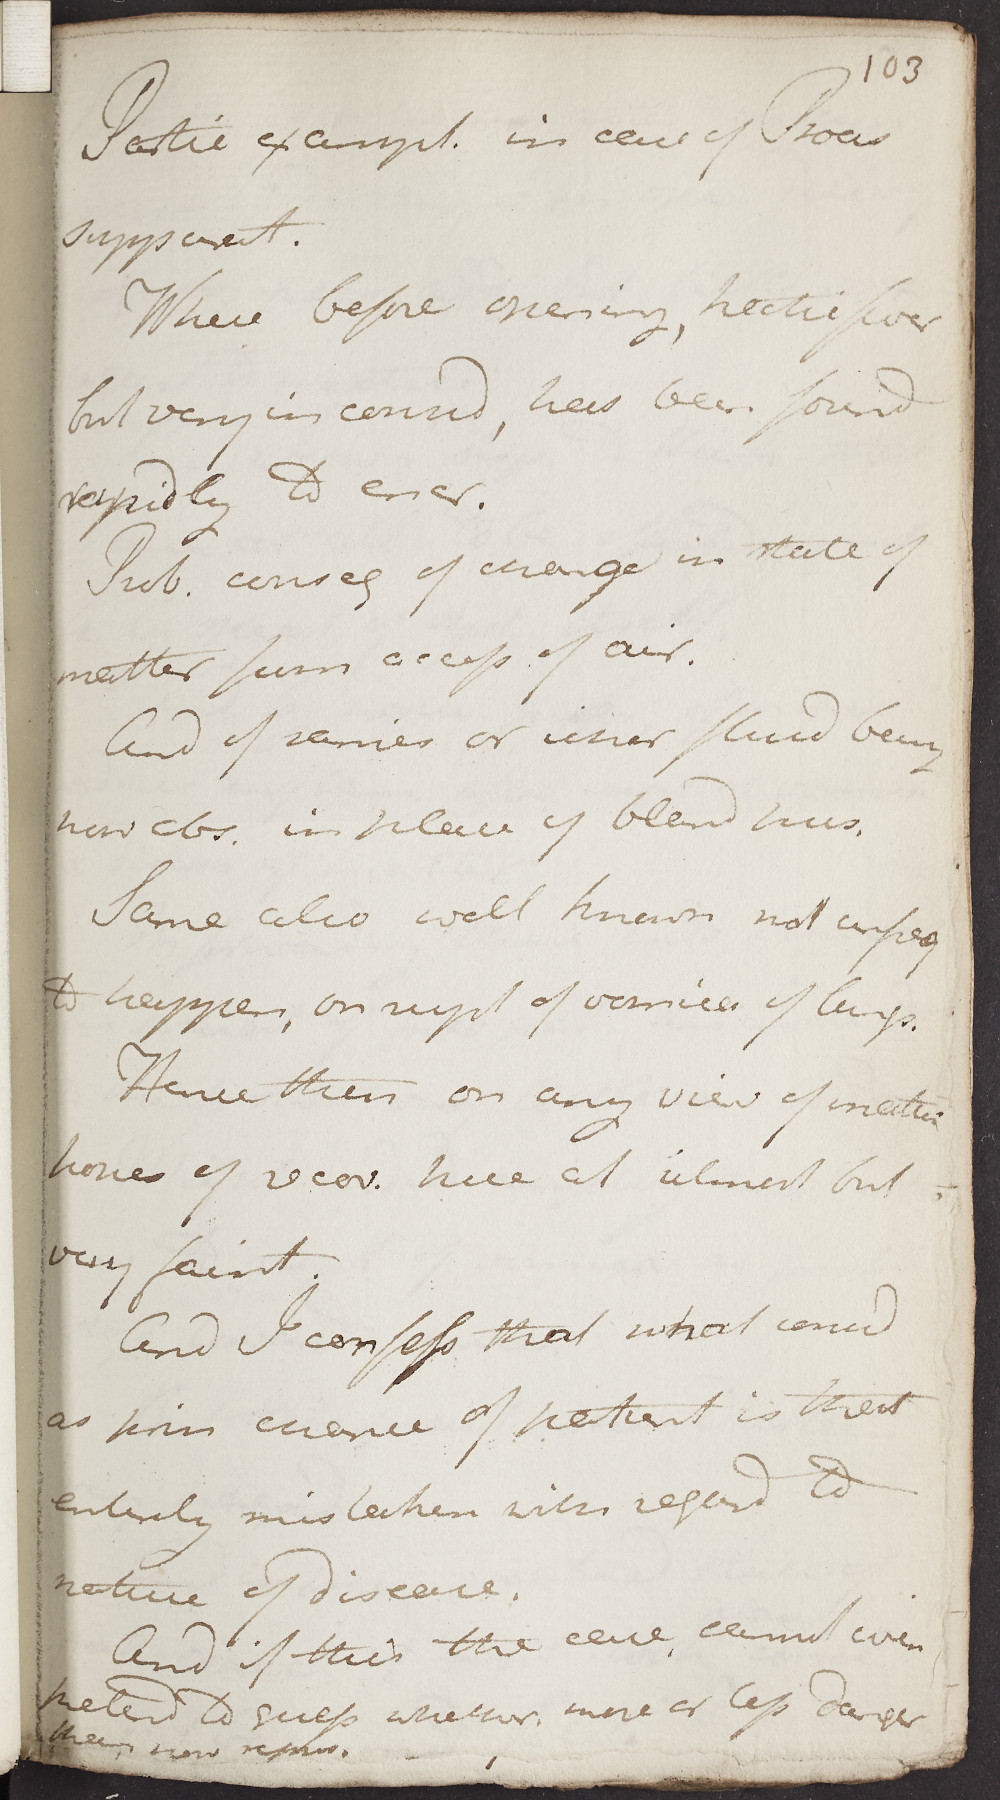 103
Partic exampl. in case of Psoas
suppurat.
Where before opening, hectic fever
but very in consid, has been found
rapidly to ensr.
Prob. conseq of change in state of
matter from access of air.
And of sanies or ichor fluid being
now abs. in place of bland pus.
Same also well known not unfreq
to happen, on rupt of vomica of lungs.
Hence then on any view of matter
hopes of recov. here at utmost but
very faint.
And I confess that what consid
as prin chance of patient is that
entirely mistaken with regard to
nature of disease.
And if this the case, cannot even
pretend to guess whether more or less danger
than now